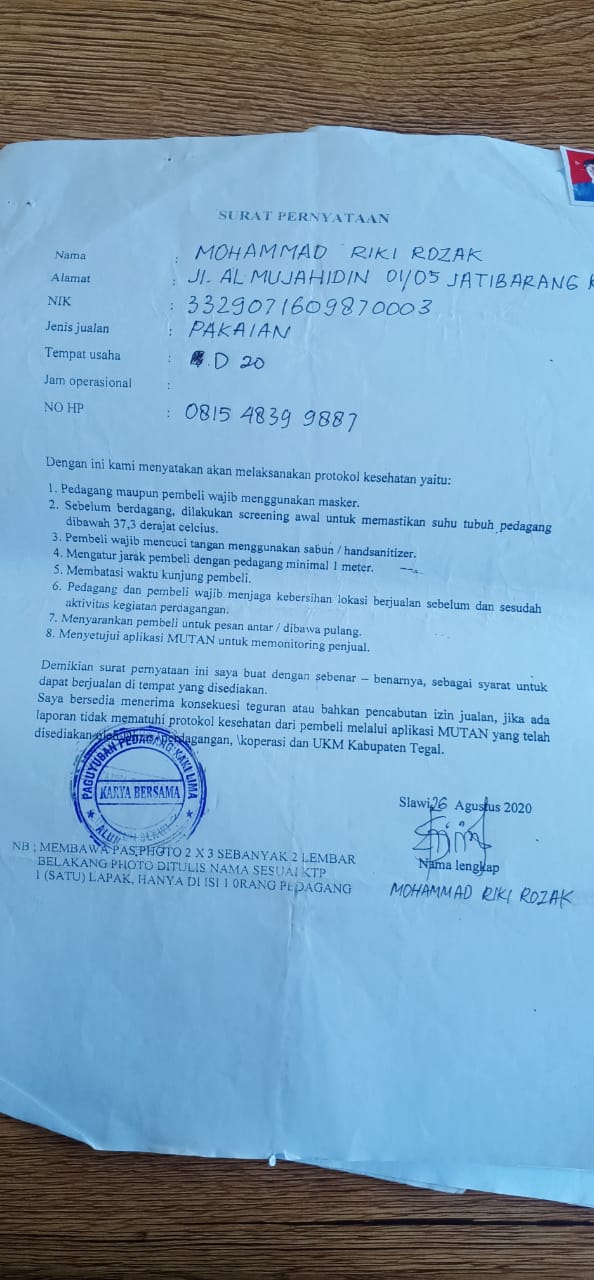 SURAT PERNYATAAN
Nama : MOHAMMAD RIKI ROZAK
Alamat : Jl. AL MUJAHIDIN 01/05 JATIBARANG K
NIK : 3329071609870003
Jenis jualan : PAKAIAN
Tempat usaha : D 20
Jam operasional :
NO HP : 0815 4839 9887
Dengan ini kami menyatakan akan melaksanakan protokol kesehatan yaitu:
1. Pedagang maupun pembeli wajib menggunakan masker.
2. Sebelum berdagang, dilakukan screening awal untuk memastikan suhu tubuh pedagang
dibawah 37,3 derajat celcius.
3. Pembeli wajib mencuci tangan menggunakan sabun / handsanitizer.
4. Mengatur jarak pembeli dengan pedagang minimal 1 meter.
5. Membatasi waktu kunjung pembeli.
6. Pedagang dan pembeli wajib menjaga kebersihan lokasi berjualan sebelum dan sesudah
aktivitas kegiatan perdagangan.
7. Menyarankan pembeli untuk pesan antar / dibawa pulang.
8. Menyetujui aplikasi MUTAN untuk memonitoring penjual.
Demikian surat pernyataan ini saya buat dengan sebenar – benarnya, sebagai syarat untuk
dapat berjualan di tempat yang disediakan.
Saya bersedia menerima konsekuesi teguran atau bahkan pencabutan izin jualan, jika ada
laporan tidak mematuhi protokol kesehatan dari pembeli melalui aplikasi MUTAN yang telah
disediakan perdagangan, \koperasi dan UKM Kabupaten Tegal.
PAGUYUBAN PEDAGANG KAKI LIMA
KARYA BERSAMA
Slawi, 26 Agustus 2020
Nama lengkap
MOHAMMAD RIKI ROZAK
NB ; MEMBAWA PAS PHOTO 2 X 3 SEBANYAK 2 LEMBAR
BELAKANG PHOTO DITULIS NAMA SESUAI KTP
1 (SATU) LAPAK, HANYA DI ISI 1 0RANG PEDAGANG